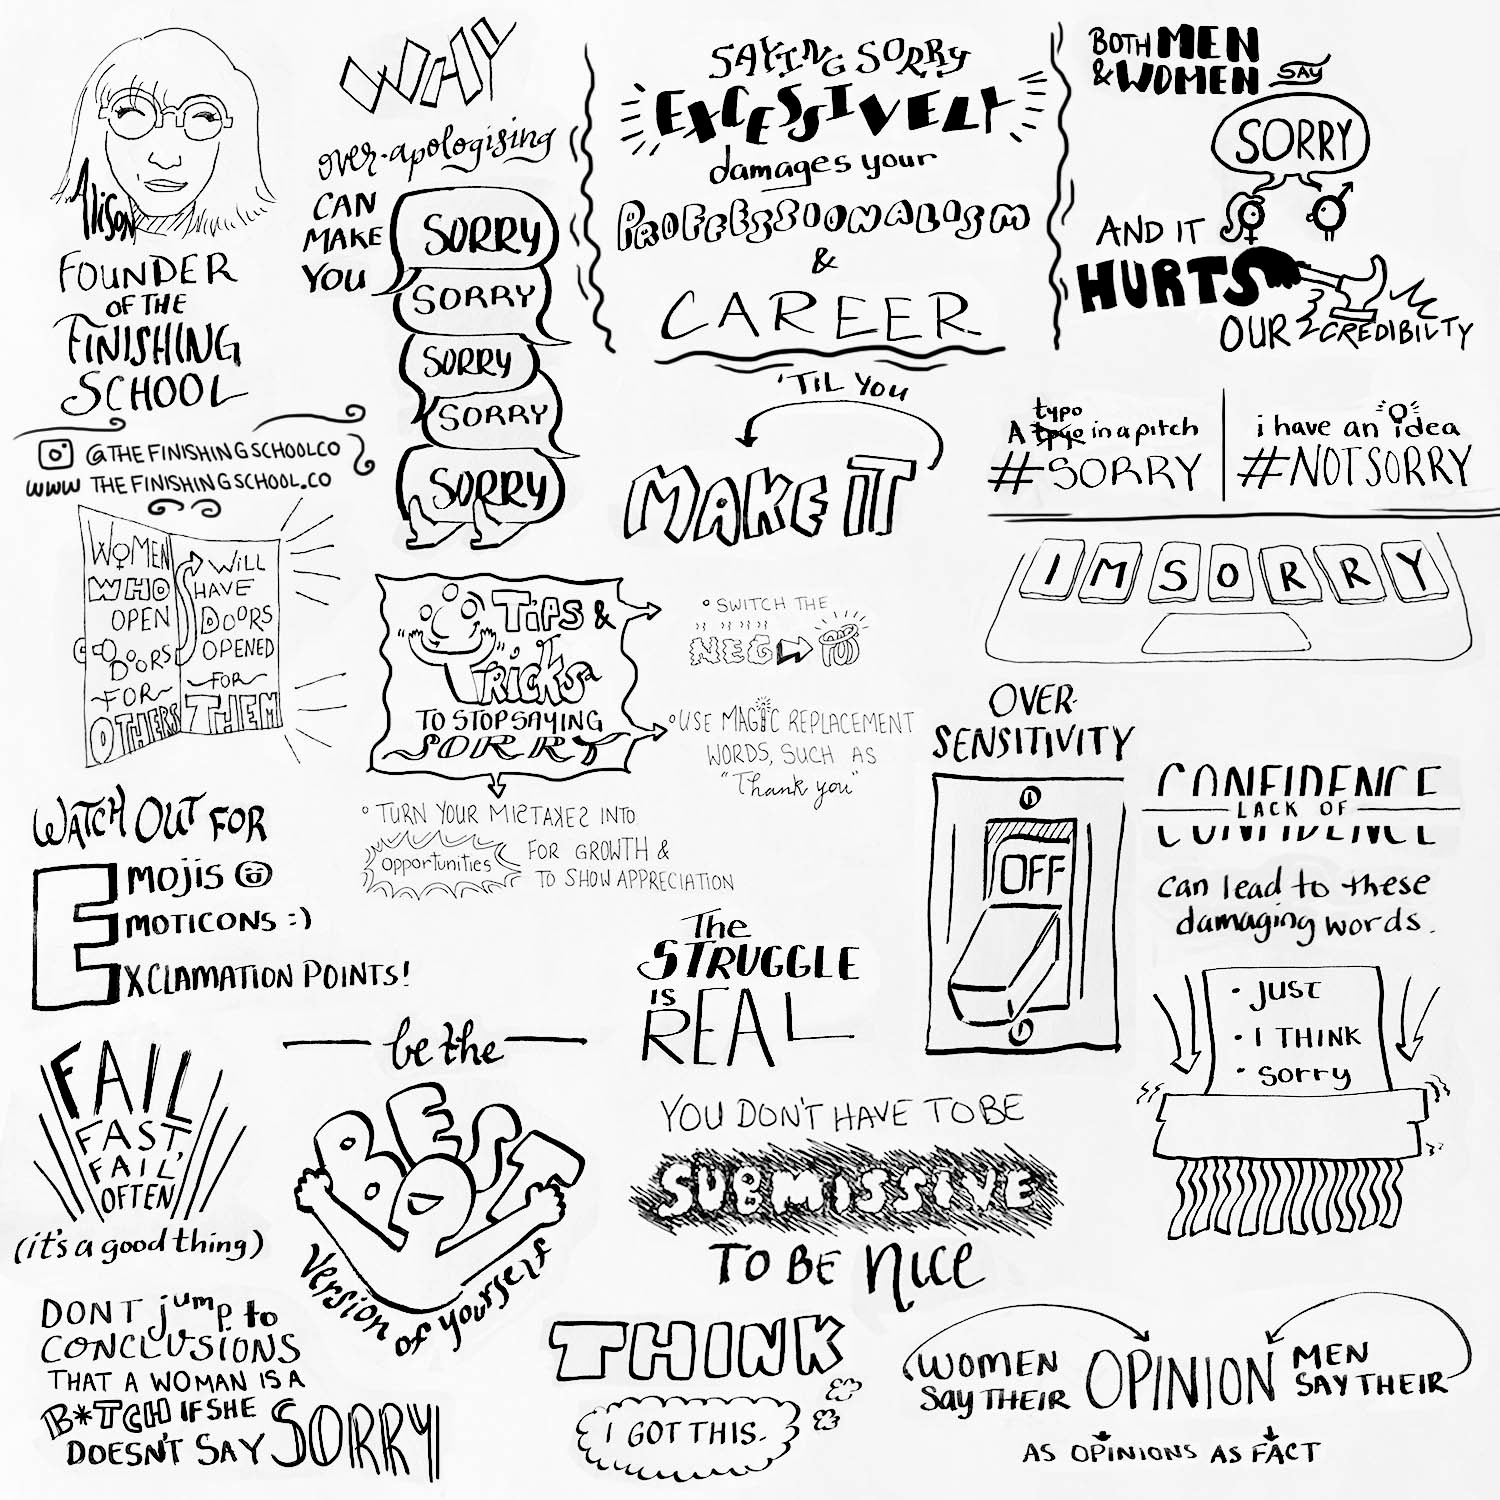 Alison
FOUNDER
OF THE
FINISHING
SCHOOL
@THEFINISHINGSCHOOLCO
WWW THEFINISHINGSCHOOL.CO
WHY
over-apologising
CAN
MAKE
YOU
SORRY
SORRY
SORRY
SORRY
SORRY
SAYING SORRY
EXCESSIVELY
damages your
PROFESSIONALISM
&
CAREER
BOTH MEN
& WOMEN SAY
SORRY
AND IT
HURTS
OUR CREDIBILTY
'TIL YOU
MAKE IT
typo
A tpyo in a pitch
#SORRY
i have an idea
#NOTSORRY
I M S O R R Y
WOMEN
WHO
OPEN
DOORS
FOR
OTHERS
WILL
HAVE
DOORS
OPENED
FOR
THEM
TIPS &
TRICKS
TO STOP SAYING
SORRY
SWITCH THE
NEG POS
USE MAGIC REPLACEMENT
WORDS, SUCH AS
"Thank you"
TURN YOUR MISTAKES INTO
opportunities FOR GROWTH &
TO SHOW APPRECIATION
OVER-
SENSITIVITY
OFF
CONFIDENCE
LACK OF
CONFIDENCE
can lead to these
damaging words.
• JUST
• I THINK
• Sorry
WATCH OUT FOR
EMOJIS
EMOTICONS :)
EXCLAMATION POINTS!
The
STRUGGLE
IS
REAL
FAIL
FAST,
FAIL
OFTEN
(it's a good thing)
be the
BEST
Version of yourself
YOU DON'T HAVE TO BE
SUBMISSIVE
TO BE nice
DONT jump to
CONCLUSIONS
THAT A WOMAN IS A
B*TCH IF SHE
DOESN'T SAY SORRY
THINK
I GOT THIS.
WOMEN
SAY THEIR
OPINION
MEN
SAY THEIR
AS OPINIONS AS FACT